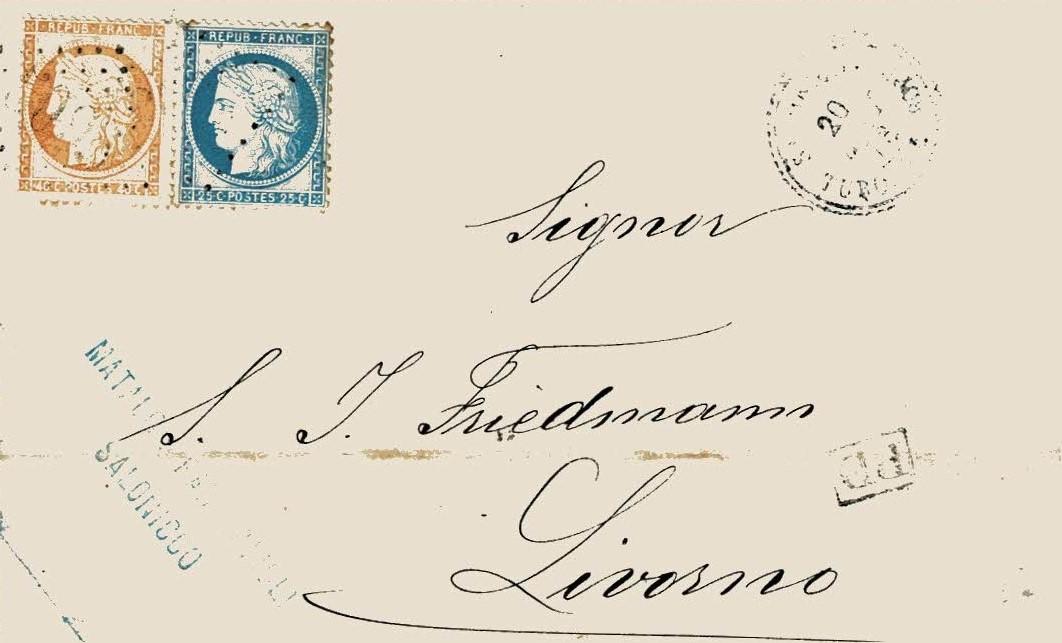 REPUB · FRANC
4C C POSTES 4C C
REPUB · FRANC
25 C POSTES 25 C
20
TURQ
Signor
S. J. Friedmann
Livorno
PD
SALONICCO